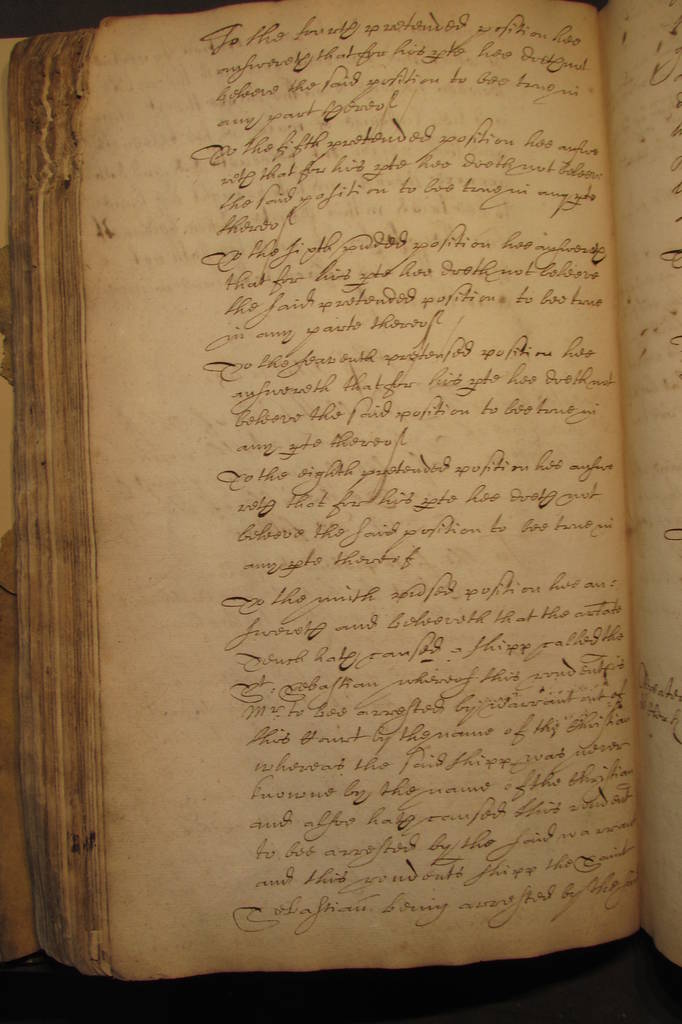 To the fourth pretended position hee
answereth that for his pte hee doth not
beleeve the said position to bee true in
any part thereof
To the fifth pretended position hee answe
reth that for his pte hee doeth not beleeve
the said position to bee true in any pte
thereof
To the sixth pnded position hee answereth
that for his pte hee doth not beleeve
the said pretended position to bee true
in any parte thereof
To the seaventh pretensed position hee
answereth that for his pte hee doth not
beleeve the said position to bee true in
any pte thereof
To the eighth pretended position hee answe
reth that for his pte hee doth not
beleeve the said position to bee true in
any pte thereof
To the ninth position hee an=
swereth and beleeveth that the artate
hath caused a shipp called the
St: Sebastian whereof this rondent is
Mr. to bee arrested by warrant out of
this Court by the name of the Christian
whereas the said shipp was never
knowne by the name of the Christian
and alsoe hath caused this rondent
to bee arrested by the said warrant
and this rondents shipp the Saint
Sebastian being arrested by the